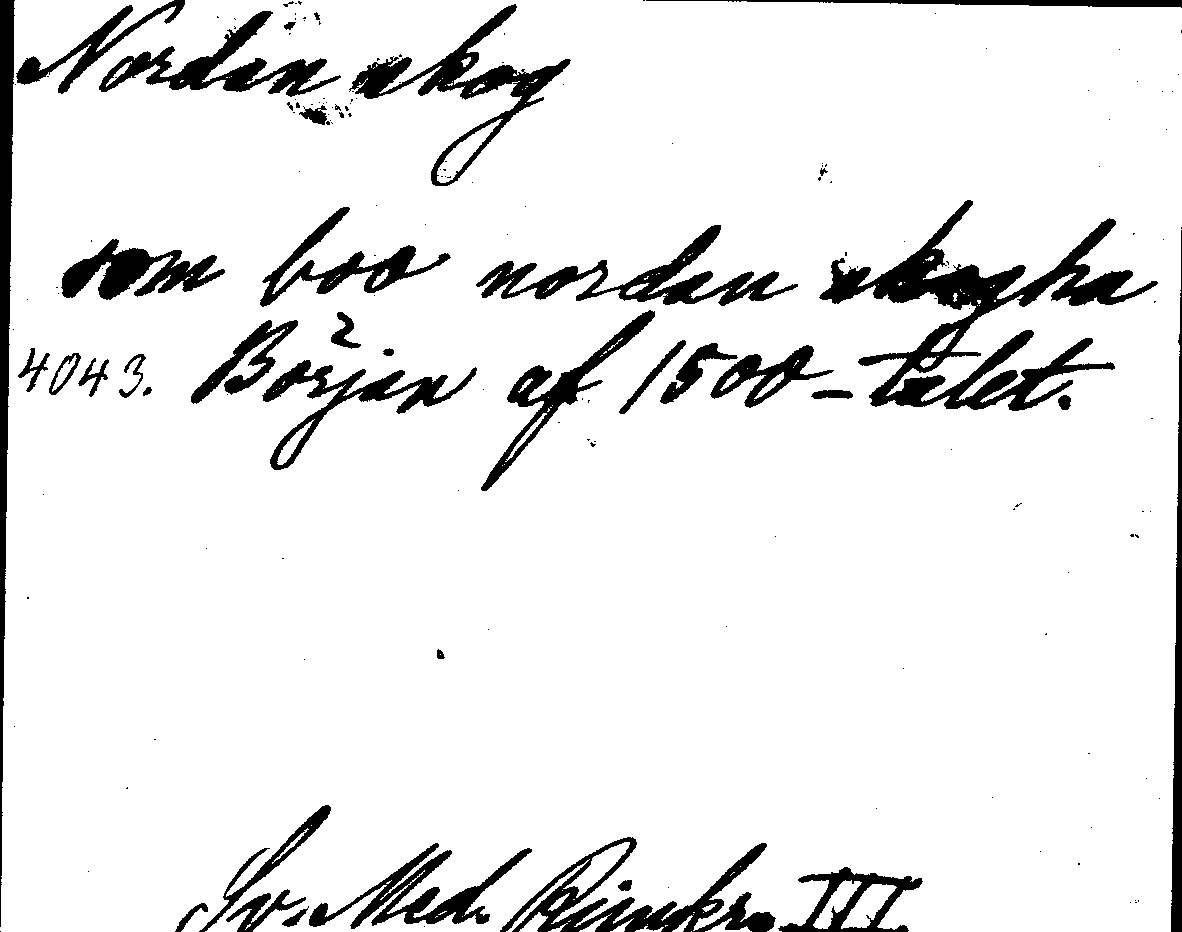 Nordan skog
som boo nordan skogha
4043. Början af 1500-talet.
Sv. Med. Rimkr. III.